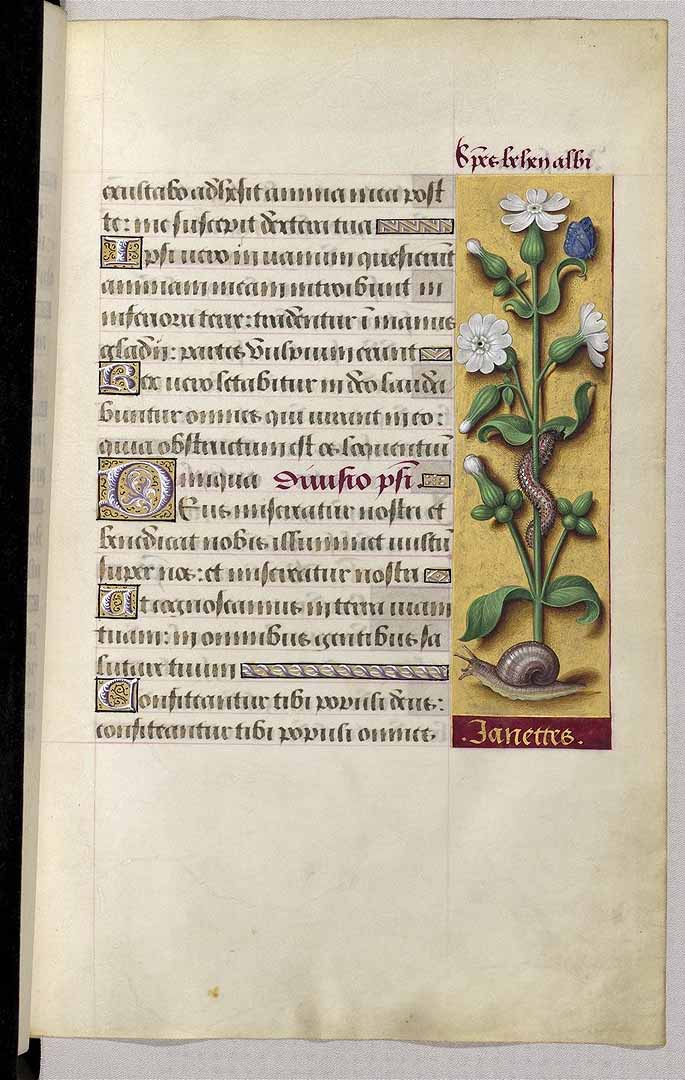 Spēs behen albi
exultabo adhesit anima mea post
te: me suscepit dextera tua
Ipsi vero in vanum quesierūt
animam meam introibunt in
inferiora terre: tradentur ī manus
gladij: partes Vulpium erunt
Rex vero letabitur in deo lauda
buntur omnes qui iurant in eo:
quia obstructum est os loquentiū
iniqua Diuisio psī.
Deus misereatur nostri et
benedicat nobis illuminet vultū
super nos: et misereatur nostri
Ut cognoscamus in terra viam
tuam: in omnibus gentibus sa
lutare tuum
Confiteantur tibi populi deus:
confiteantur tibi populi omnes
.Janettes.